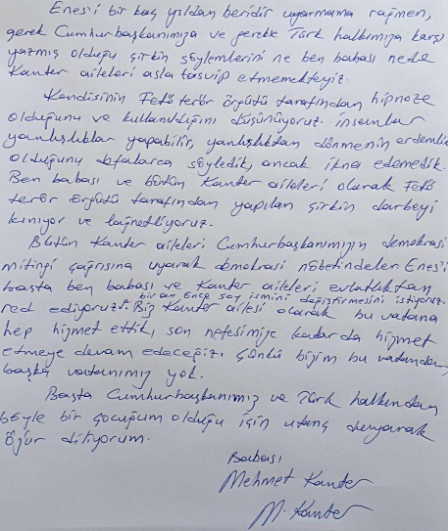 Enes'i bir kaç yıldan beridir uyarmama rağmen,
gerek Cumhurbaşkanımıza ve gerekse Türk halkımıza karşı
yazmış olduğu çirkin söylemlerini ne ben babası nede
Kanter aileleri asla tasvip etmemekteyiz.
Kendisinin Fetö terör örgütü tarafından hipnoze
olduğunu ve kullanıldığını düşünüyoruz. insanlar
yanlışlıklar yapabilir, yanlıştan dönmenin erdemlik
olduğunu defalarca söyledik, ancak ikna edemedik.
Ben babası ve bütün Kanter aileleri olarak Fetö
terör örgütü tarafından yapılan çirkin darbeyi
kınıyor ve lağnetliyoruz.
Bütün Kanter aileleri Cumhurbaşkanımızın demokrasi
mitingi çağrısına uyarak demokrasi nöbetindeler. Enes'i
başta ben babası ve Kanter aileleri evlatlıktan
bir an önce soy ismini değiştirmesini istiyoruz.
red ediyoruz. Biz Kanter ailesi olarak bu vatana
hep hizmet ettik, son nefesimize kadar da hizmet
etmeye devam edeceğiz. Çünkü bizim bu vatandan
başka vatanımız yok.
Başta Cumhurbaşkanımız ve Türk halkından
böyle bir çocuğum olduğu için utanç duyarak
Özür diliyorum.
Babası
Mehmet Kanter
M. Kanter